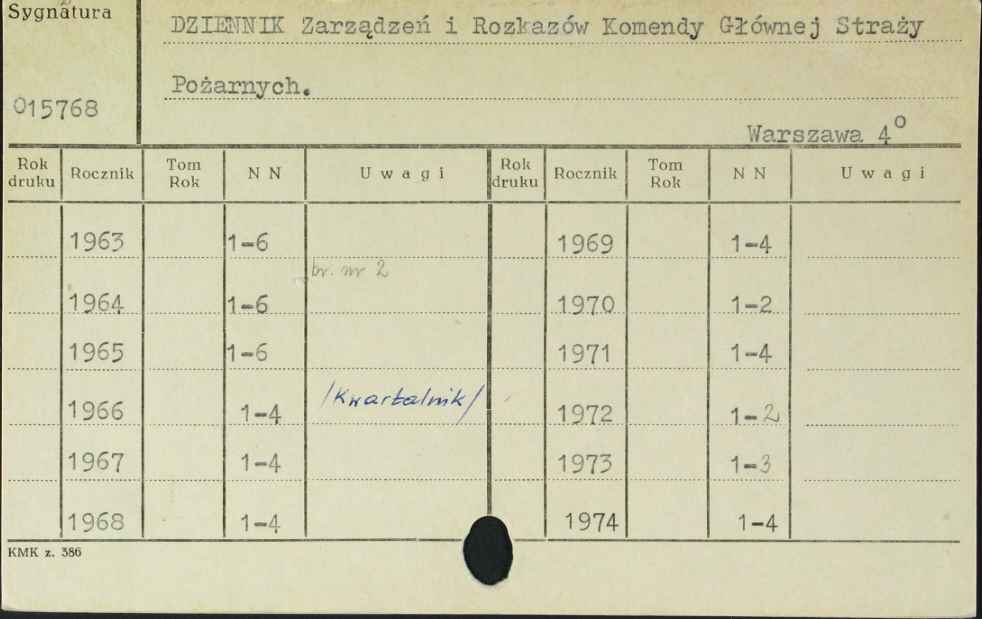 Sygnatura
DZIENNIK Zarządzeń i Rozkazów Komendy Głównej Straży
Pożarnych.
015768
Warszawa 4°
Rok druku Rocznik Tom Rok N N Uwagi Rok druku Rocznik Tom Rok N N Uwagi
1963 1-6 1969 1-4
br. nr 2
1964 1-6 1970 1-2
1965 1-6 1971 1-4
1966 1-4 /Kwartalnik/ 1972 1-2
1967 1-4 1973 1-3
1968 1-4 1974 1-4
KMK z. 386